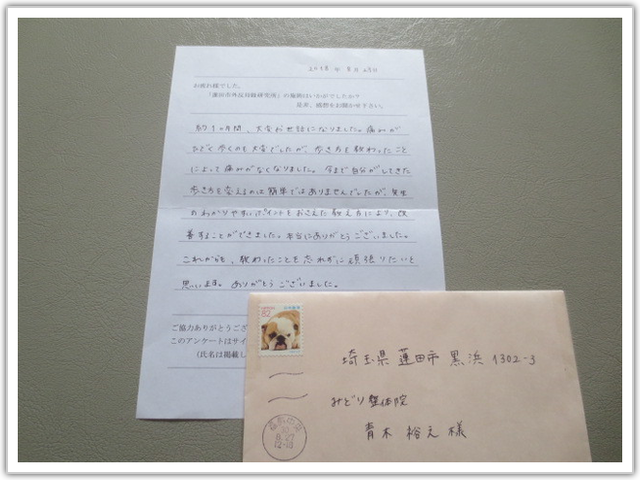 2018年 8月 25日
お疲れ様でした。
「蓮田市外反母趾研究所」の施術はいかがでしたか？
是非、感想をお聞かせ下さい。
約1ヶ月間、大変お世話になりました。痛みが
ひどく歩くのも大変でしたが、歩き方を教わったこと
によって痛みがなくなりました。今まで自分がしてきた
歩き方を変えるのは簡単ではありませんでしたが、先生
のわかりやすいポイントをおさえた教え方によって、改
善することができました。本当にありがとうございました。
これからも、教わったことを忘れずに頑張りたいと
思います。ありがとうございました。
ご協力ありがとうござ
このアンケートはサイ
（氏名は掲載し
82
埼玉県蓮田市黒浜1302-3
みどり整体院
青木 裕 様
30
12-18